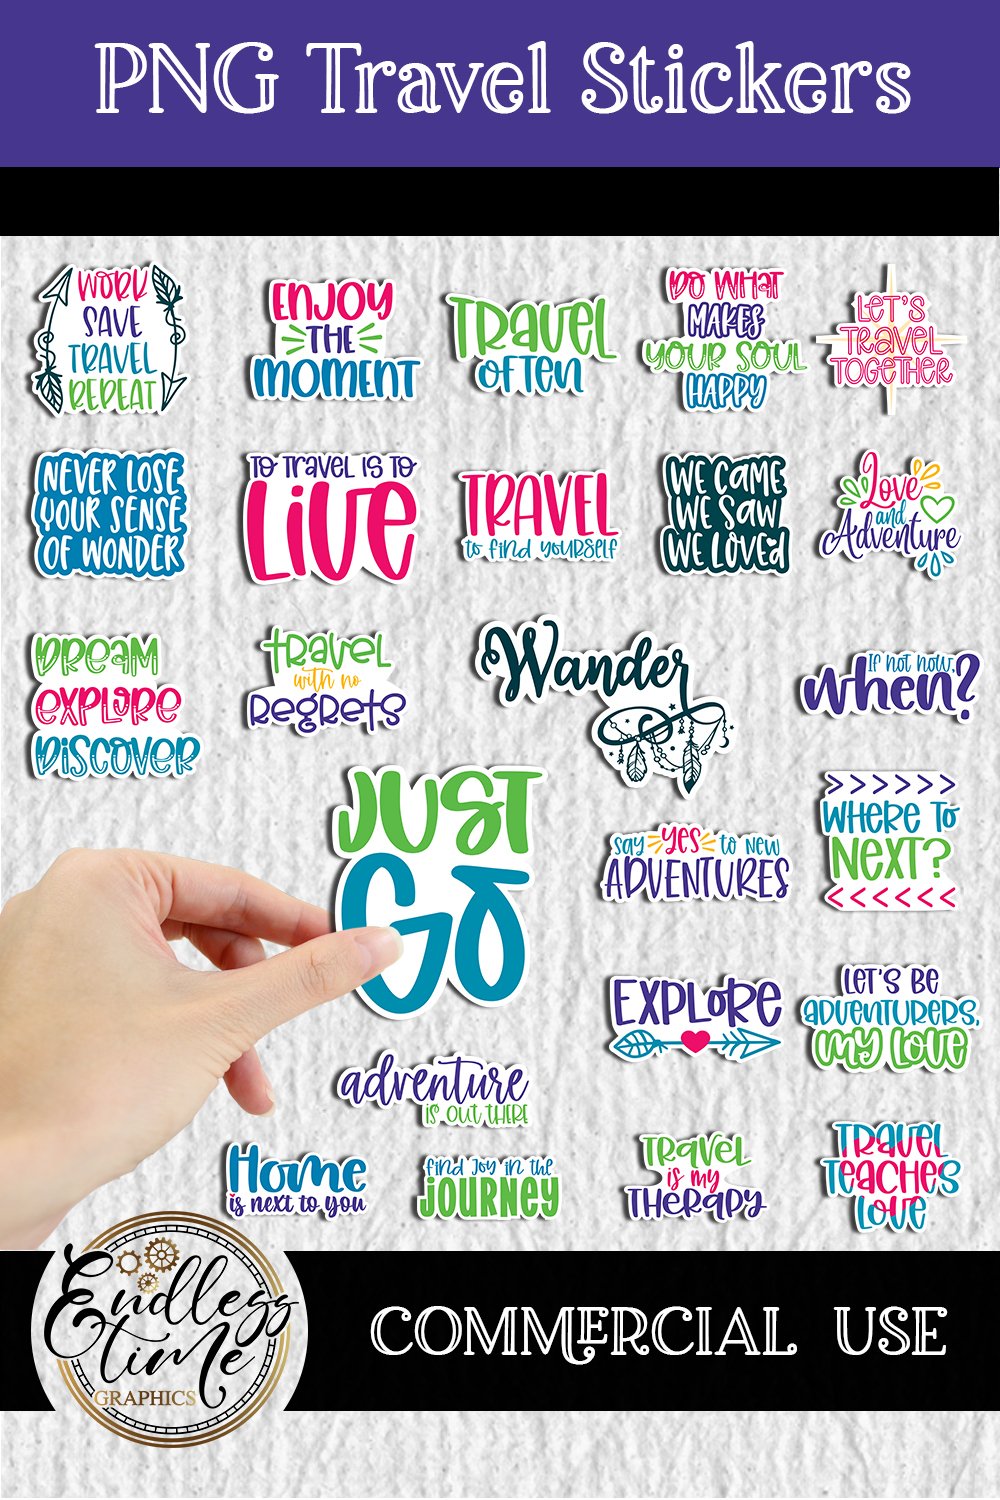 PNG Travel Stickers
WORK
SAVE
TRAVEL
REPEAT
ENJOY
THE
MOMENT
TRavel
OFTEN
DO WHAT
MAKES
YOUR SOUL
HAPPY
LET'S
TRAVEL
TOGETHER
NEVER LOSE
YOUR SENSE
OF WONDER
TO TRAVEL IS TO
LIVE
TRAVEL
to find yourself
WE CAME
WE SAW
WE LOVED
Love
and
Adventure
DREAM
EXPLORE
DISCOVER
travel
with no
Regrets
Wander
If not now,
when?
JUST
GO
say YES to new
ADVENTURES
WHERE TO
NEXT?
EXPLORE
LET'S BE
adventurers,
my love
adventure
is out there
Home
is next to you
find joy in the
JOURNEY
TRavel
is my
THERAPY
TRAVEL
TEACHES
LOVE
Endless
time
GRAPHICS
COMMERCIAL USE